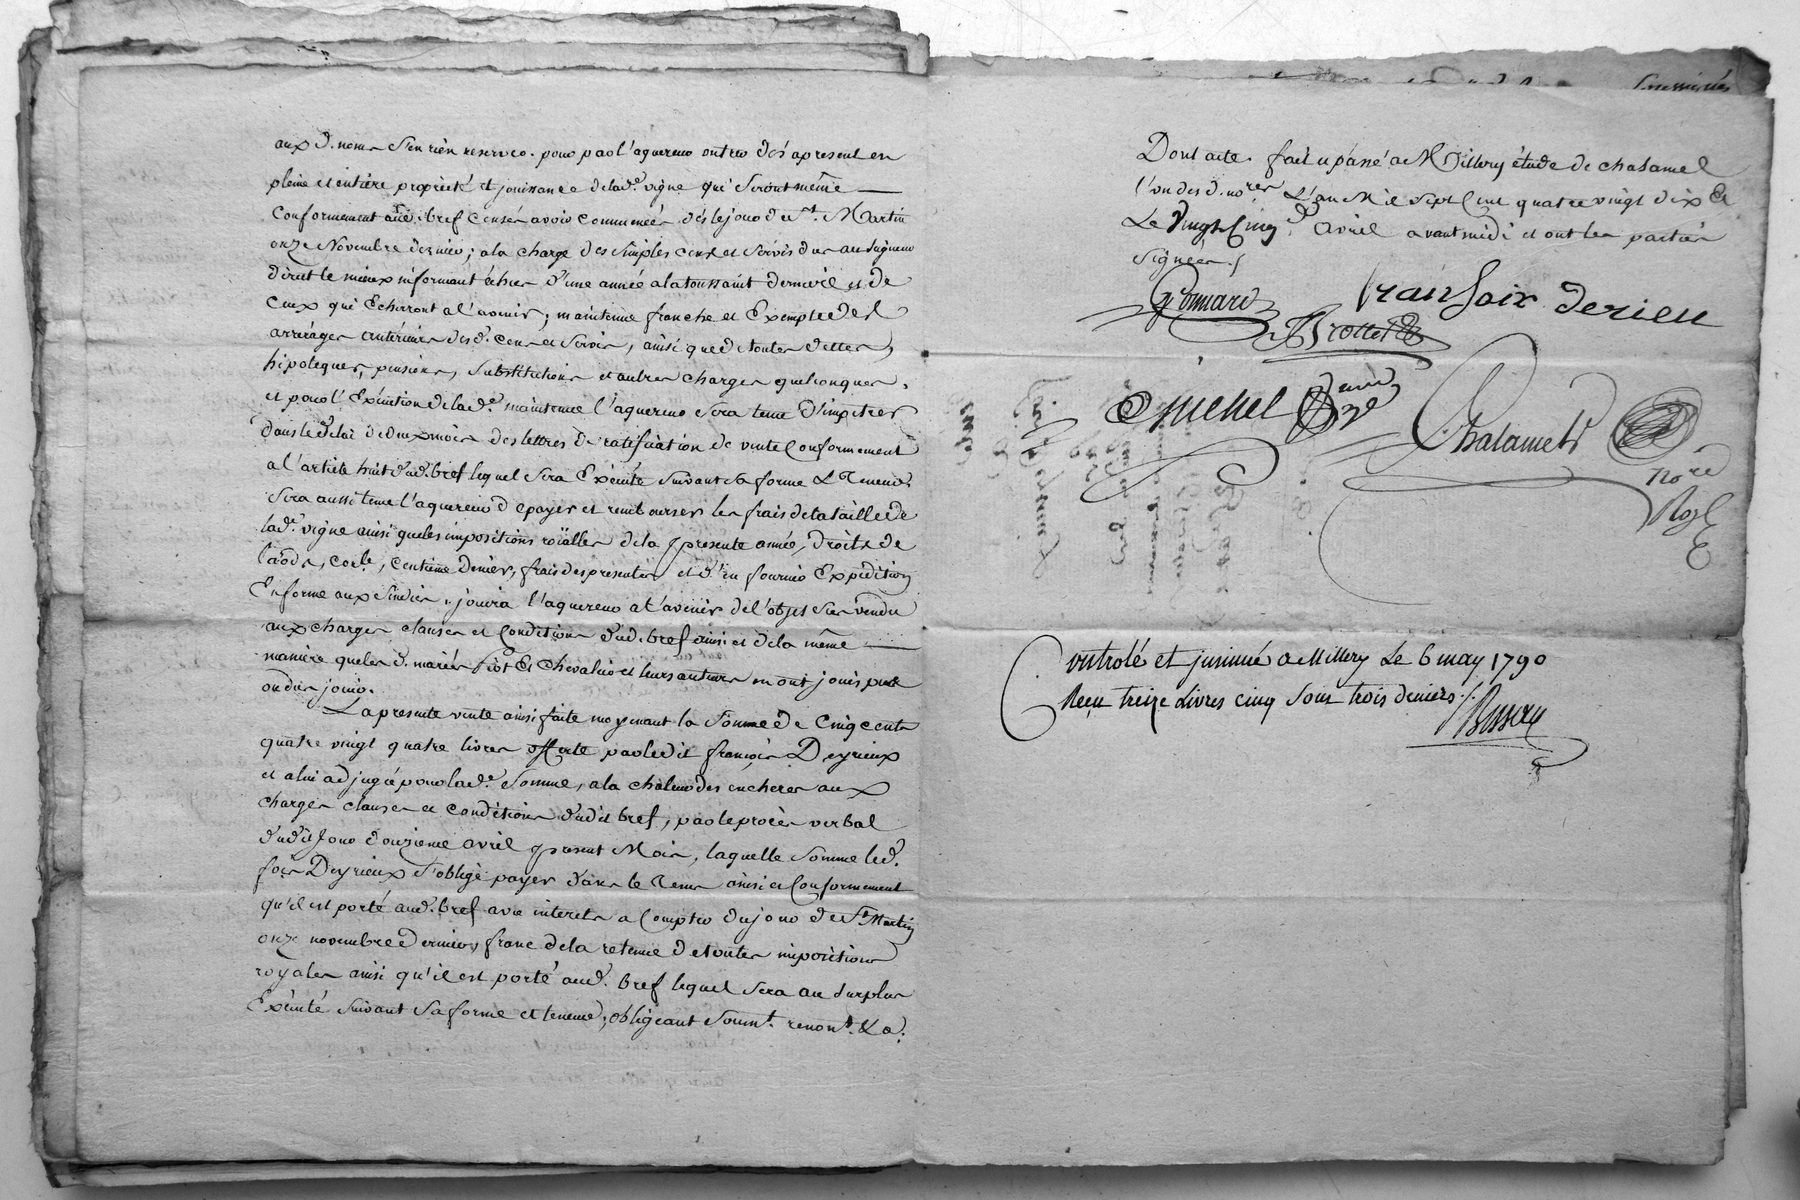 aux d. noms s'en rien reserver. pour par l'aquereur entrer dés apresent en
pleine et entiére propriété et jouissance de lad.e vigne qui seront même
conformement aud. bref censés avoir commencés dés le jour de St. Martin
onze Novembre dernier; a la charge des simples cens et servis dus au seigneur
direct le mieux informant échus d'une année a la toussaint derniere et de
ceux qui Echerront a l'avenir; maintenue franche et Exempte des
arrérages antérieurs desd. cens et servis, ainsi que de toutes dettes,
hipoteques, pensions, substitutions et autres charges quelconques,
et pour l'Exécution de lad.e maintenue l'aquereur sera tenu d'impetrer
dans le délai de deux mois des lettres de ratification de vente Conformement
a l'article huit dud. bref lequel sera Exécuté suivant sa forme & Teneur.
sera aussi tenu l'aquereur de payer et rembourser les frais de la taille de
lad.e vigne ainsi que les impositions roïalles de la presente année, droits de
laods, centieme denier, frais des presentes et d'en fournir Expedition
En forme aux vendeurs, jouira l'aquereur a l'avenir de l'objet sus vendu
aux charges clauses et Conditions dud. bref ainsi et de la même
manière que les d. mariés fiot & Chevalier et leurs auteurs en ont jouis
ou dus jouir.
La presente vente ainsi faite moyenant la somme de Cinq cents
quatre vingt quatre livres offerte par ledit françois Deyrieux
et a lui adjugée pour lad.e somme, a la chaleur des encheres aux
charges clauses et conditions dudit bref, par le procès verbal
dudit jour douzieme avril present Mois, laquelle somme led.
fois Deyrieux s'oblige payer dans le Terme ainsi et Conformement
qu'il est porté aud. bref avec interets a Compter du jour de St Martin
onze novembre dernier, franc de la retenue de toutes impositions
royales ainsi qu'il est porté aud. bref lequel sera au surplus
Exécuté suivant sa forme et teneur; obligeant soumt. renont. &a.
Dont acte. fait et passé a Millery étude de chalamel
l'un des d. nores L'an Mil sept Cent quatre vingt dix &
Le Vingt Cinq d. avril avant midi et ont les parties
Signées./
Gonnard fransoix derieu
Michel
Chalamel
nore
Royl
Controlé et jnsinué a Millery Le 6 may 1790
Reçu treize Livres cinq sous trois deniers./.
Besson